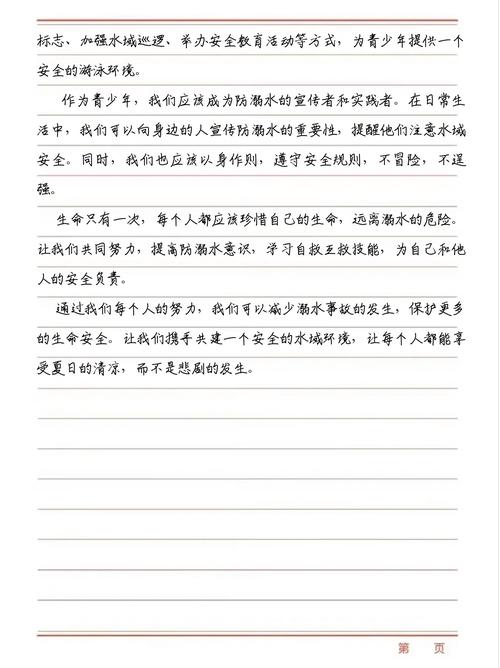 标志、加强水域巡逻、举办安全教育活动等方式，为青少年提供一个
安全的游泳环境。
作为青少年，我们应该成为防溺水的宣传者和实践者。在日常生
活中，我们可以向身边的人宣传防溺水的重要性，提醒他们注意水域
安全。同时，我们也应该以身作则，遵守安全规则，不冒险，不逞
强。
生命只有一次，每个人都应该珍惜自己的生命，远离溺水的危险。
让我们共同努力，提高防溺水意识，学习自救互救技能，为自己和他
人的安全负责。
通过我们每个人的努力，我们可以减少溺水事故的发生，保护更多
的生命安全。让我们携手共建一个安全的水域环境，让每个人都能享
受夏日的清凉，而不是悲剧的发生。
第 页